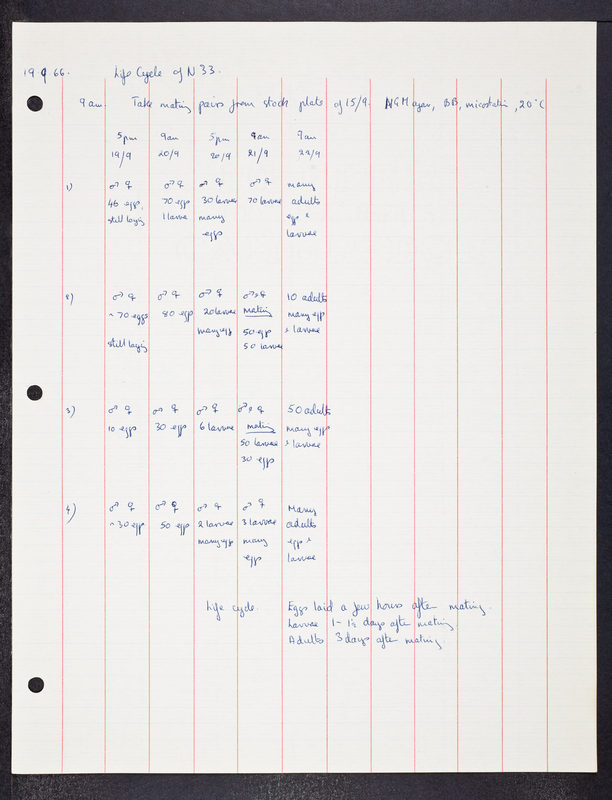 19 9 66. Life Cycle of N 33.
9 am. Take mating pairs from stock plate of 15/9. NGM agar, BB, micostatin, 20°C
5pm 9am 5pm 9am 9am
19/9 20/9 20/9 21/9 22/9
1) ♂ ♀ ♂ ♀ ♂ ♀ ♂ ♀ many
46 eggs, 70 eggs 30 larvae 70 larvae adults
still laying 1 larva many eggs &
eggs larvae
2) ♂ ♀ ♂ ♀ ♂ ♀ ♂ ♀ 10 adults
~ 70 eggs 80 eggs 20 larvae mating many eggs
many eggs 50 eggs & larvae
still laying 50 larvae
3) ♂ ♀ ♂ ♀ ♂ ♀ ♂ ♀ 50 adults
10 eggs 30 eggs 6 larvae mating many eggs
50 larvae & larvae
30 eggs
4) ♂ ♀ ♂ ♀ ♂ ♀ ♂ ♀ Many
~ 30 eggs 50 eggs 2 larvae 3 larvae adults
many eggs many eggs &
eggs larvae
Life cycle. Eggs laid a few hours after mating.
Larvae 1 - 1½ days after mating
Adults 3 days after mating.